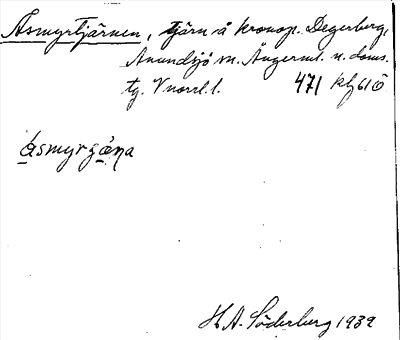 Åsmyrtjärnen, tjärn å kronop. Degerberg,
Anundsjö sn. Ångerml. n. doms.
tg. V norrl. l. 471 kbf 61 ö
åsmyrȷ̌ǽṇa
H. A. Söderberg 1939